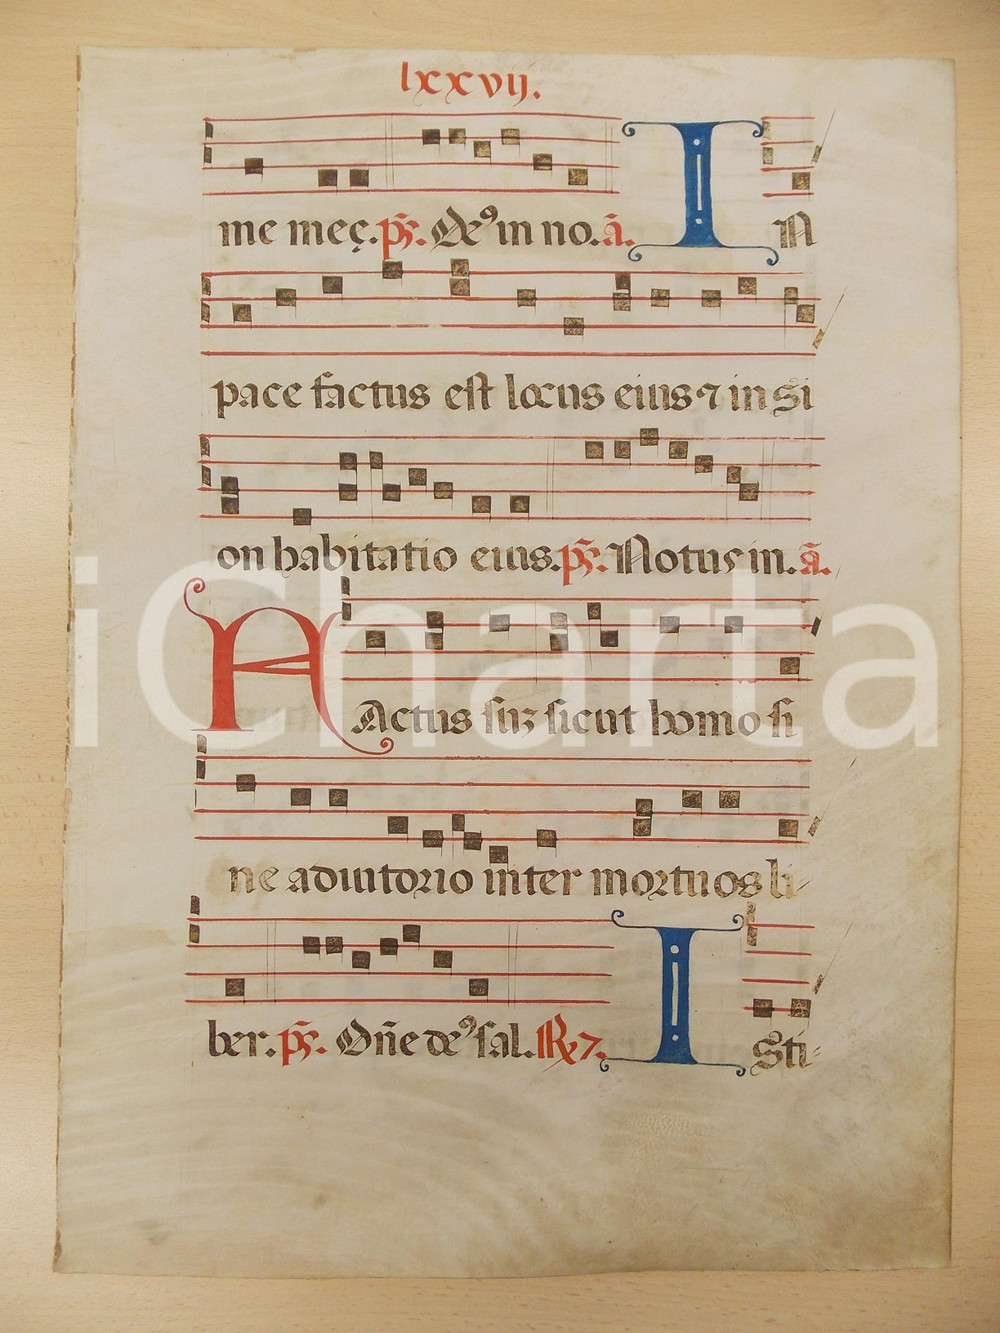 lxxvij.
me meę. ps̃. De⁹ in no. ã. I N
pace factus est locus eius ⁊ in Si
on habitatio eius. ps̃. Notus in. ã.
F Actus suꝫ sicut homo si
ne adiutorio inter mortuos li-
ber. ps̃. Dñe de⁹ sal. ℟ 7. I Sti-
iCharta